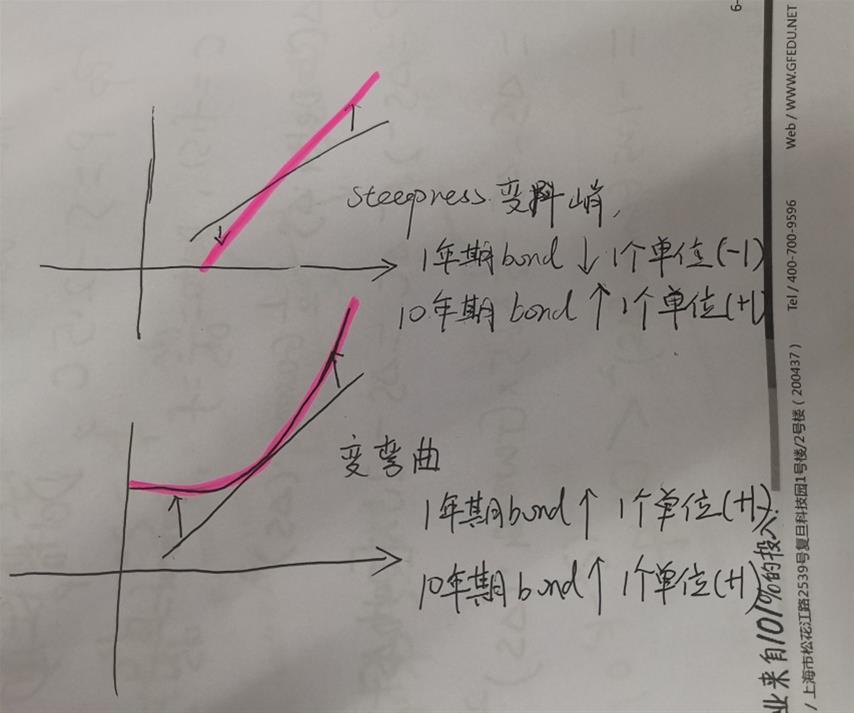 steepness 变斜峭,
1年期bond ↓ 1个单位(-1)
10年期 bond ↑ 1个单位(+1)
变弯曲
1年期bond ↑ 1个单位(+1)
10年期 bond ↑ 1个单位(+1)
6-
Web / WWW.GFEDU.NET
Tel / 400-700-9596
/ 上海市松花江路2539号复旦科技园1号楼/2号楼 ( 200437 )
业来自101%的投入